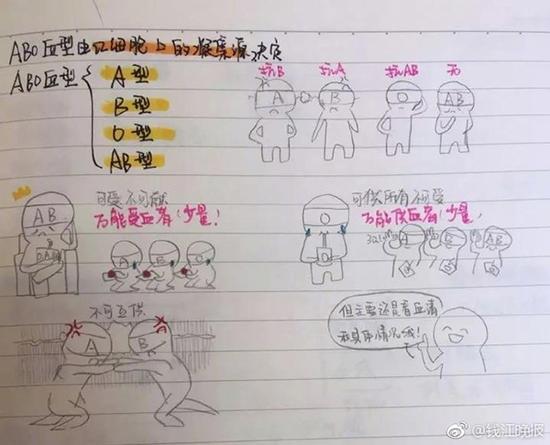 ABO血型由红细胞上的凝集源决定
ABO血型
A型
B型
O型
AB型
抗B 抗A 抗AB 无
A B O AB
可受不可献
万能受血者(少量!
AB
A B O
可供所有不可受
万能供血者(少量!
O
321
A B AB
不可互供
A B
但主要还是看血清
和具体情况哦!
@钱江晚报